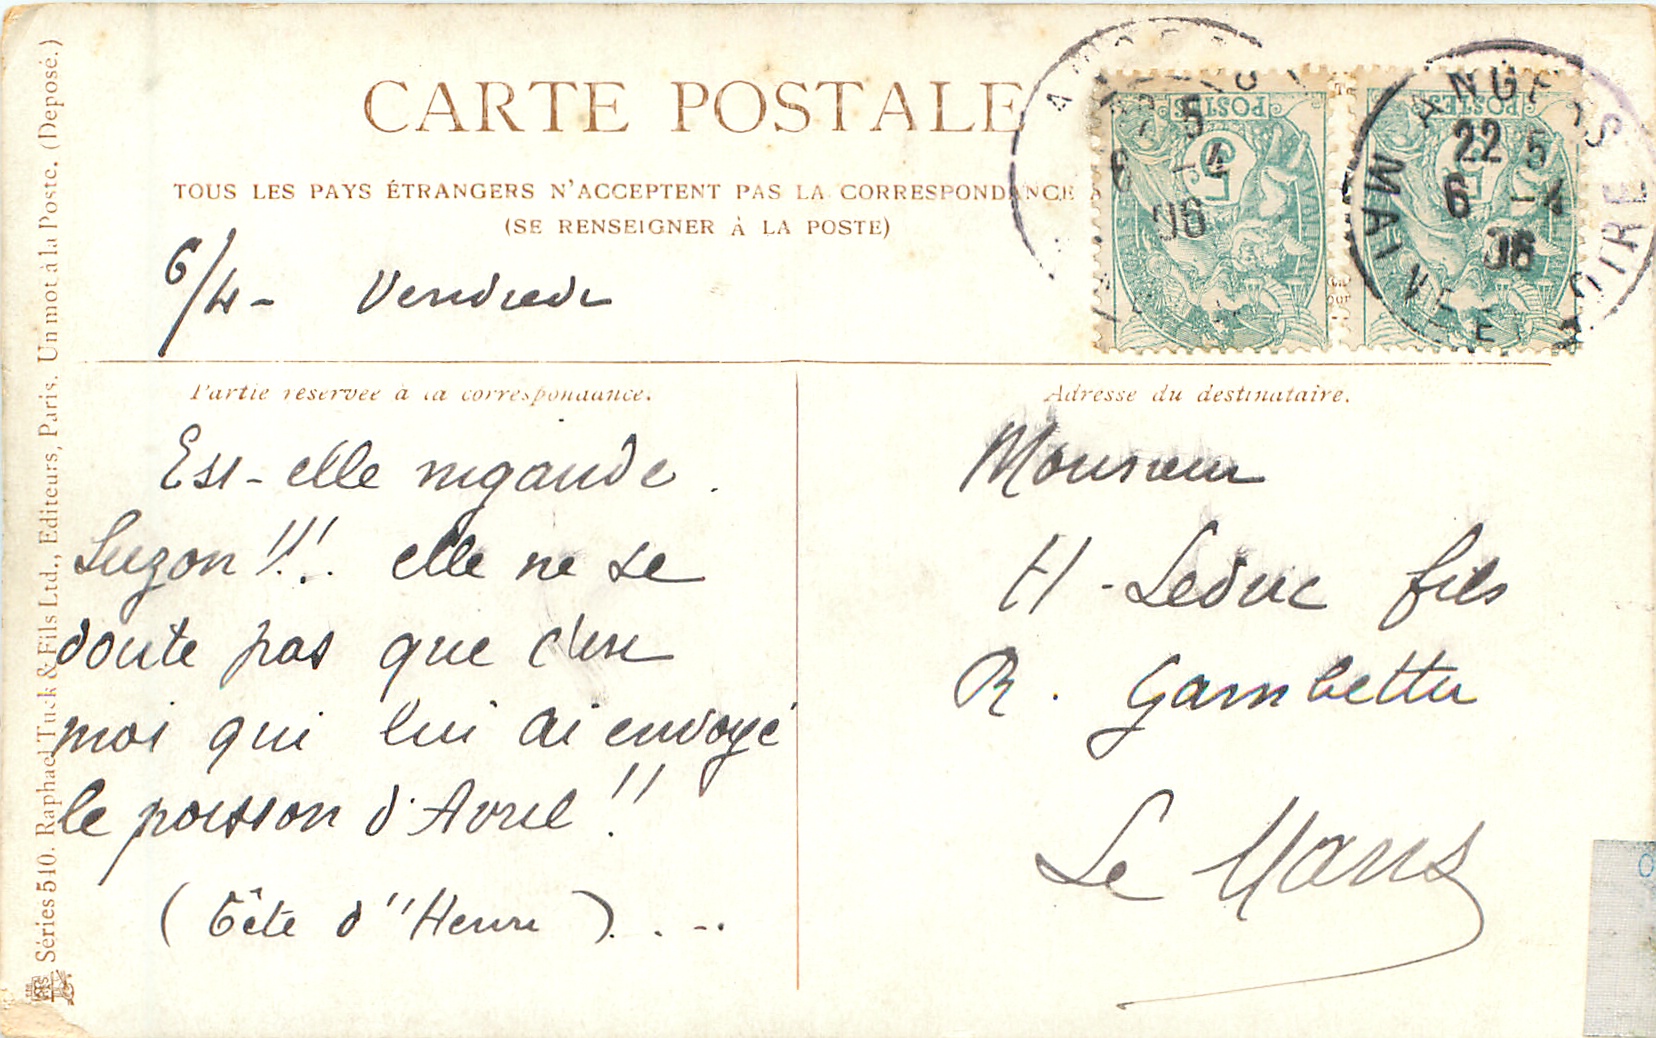 CARTE POSTALE
TOUS LES PAYS ÉTRANGERS N'ACCEPTENT PAS LA CORRESPONDANCE
(SE RENSEIGNER À LA POSTE)
6/4 - Vendredi
ANGERS
22 5
6 -4
06
MAINE ET LOIRE
5
6 -4
06
POSTES
5
POSTES
5
Partie réservée à la correspondance.
Est-elle nigaude
Suzon !!! elle ne se
doute pas que c'est
moi qui lui ai envoyé
le poisson d'Avril !!
(Tête d'"Henri) . . -.
Adresse du destinataire.
Monsieur
H - Leduc fils
R. Gambetta
Le Mans
Séries 510. Raphael Tuck & Fils Ltd., Editeurs, Paris. Un mot à la Poste. (Deposé.)